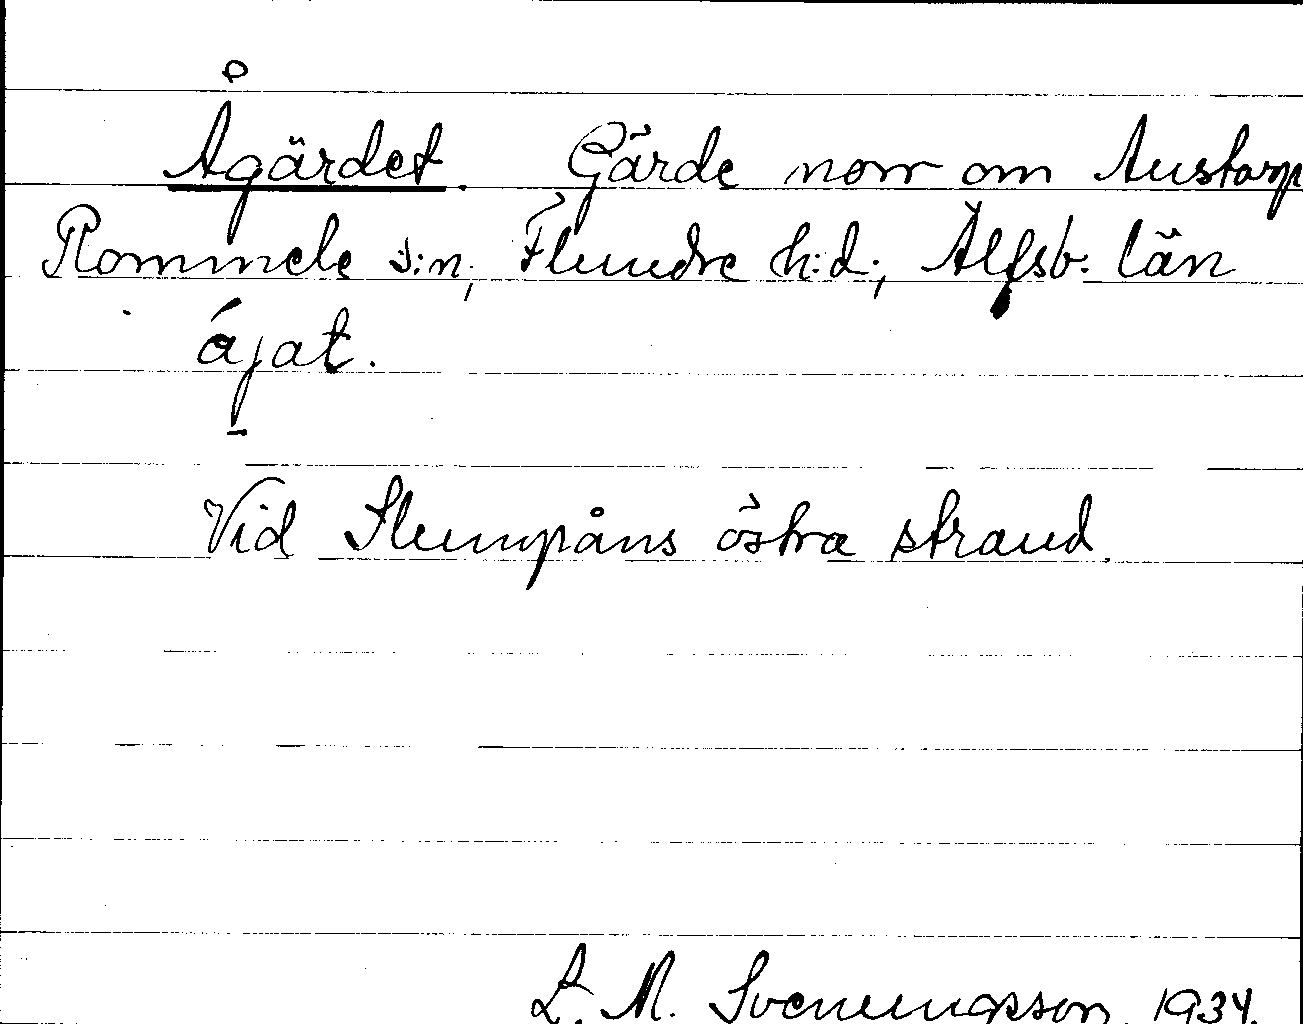 Ågärdet. Gärde norr om Austorp
Rommele s:n, Flundre h:d:, Älfsb: län
ájat.
Vid Slumpåns östra strand.
L. M. Svenungsson, 1934.